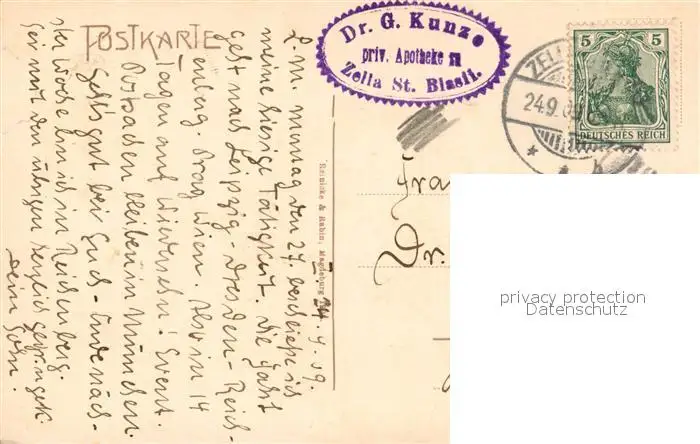 POSTKARTE
Dr. G. Kunze
priv. Apotheke
Zella St. Blasii.
5 5
DEUTSCHES REICH
ZELLA
24.9.09
Reinicke & Rubin, Magdeburg
24.9.09.
L. M. Montag den 27. beschließe ich
meine hiesige Tätigkeit. Die Fahrt
geht nach Leipzig-Dresden-Reich-
enberg. Prag Wien. Also in 14
Tagen auf Wiedersehn! Event.
Postsachen bleiben in München.
Geht's gut bei Euch - Ende näch-
ster Woche bin ich in Reichenberg.
Sei mit den übrigen herzlich gegrüßt
Dein Sohn.
Fra
Dr.
privacy protection
Datenschutz